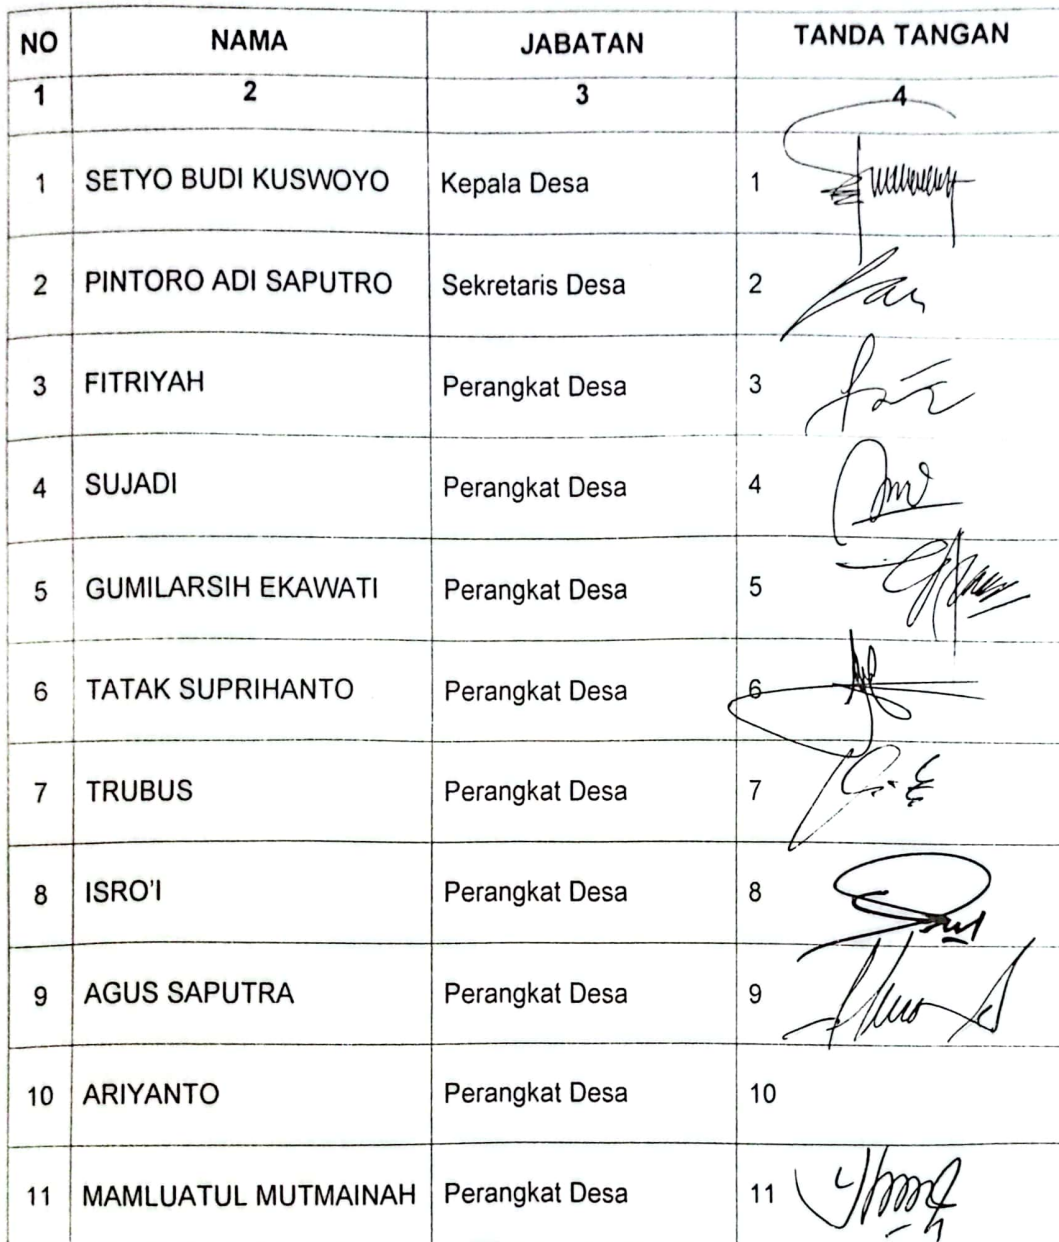 NO NAMA JABATAN TANDA TANGAN
1 2 3 4
1 SETYO BUDI KUSWOYO Kepala Desa 1
2 PINTORO ADI SAPUTRO Sekretaris Desa 2
3 FITRIYAH Perangkat Desa 3
4 SUJADI Perangkat Desa 4
5 GUMILARSIH EKAWATI Perangkat Desa 5
6 TATAK SUPRIHANTO Perangkat Desa 6
7 TRUBUS Perangkat Desa 7
8 ISRO'I Perangkat Desa 8
9 AGUS SAPUTRA Perangkat Desa 9
10 ARIYANTO Perangkat Desa 10
11 MAMLUATUL MUTMAINAH Perangkat Desa 11